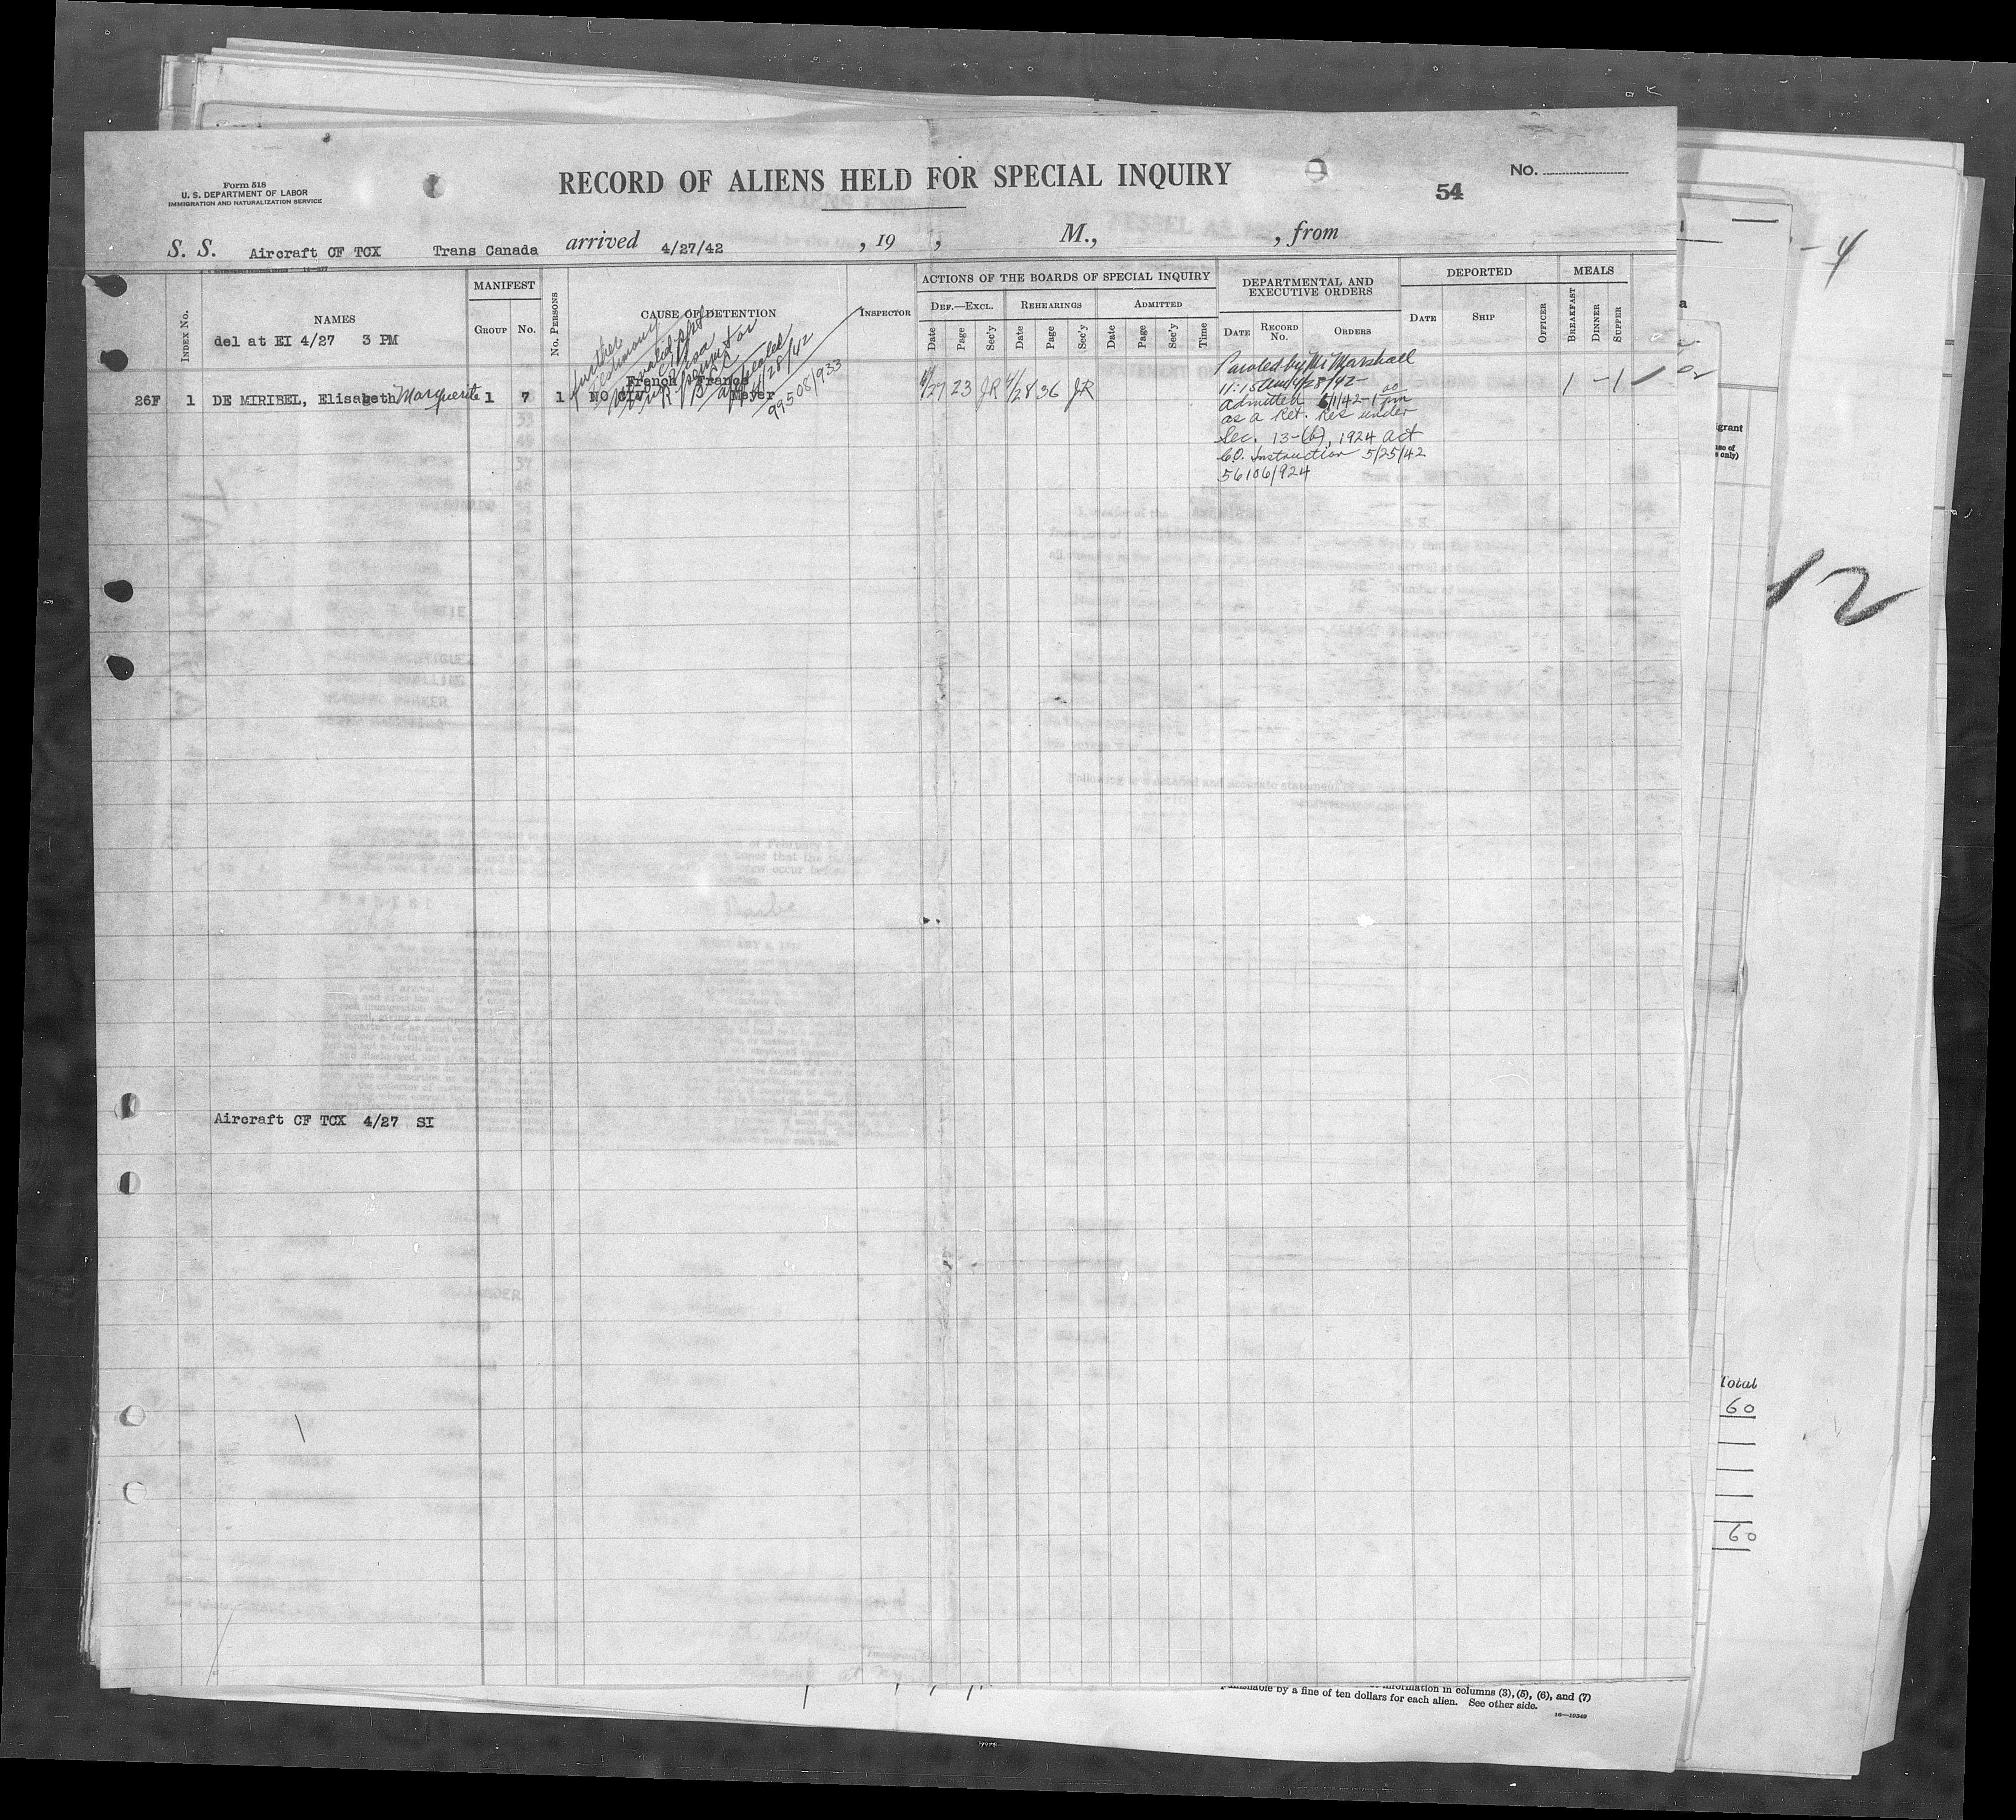 Form 518
U. S. DEPARTMENT OF LABOR
IMMIGRATION AND NATURALIZATION SERVICE
RECORD OF ALIENS HELD FOR SPECIAL INQUIRY
54
No.
S. S. Aircraft CF TCX Trans Canada arrived 4/27/42 , 19 , M., , from
INDEX No.
NAMES
del at EI 4/27 3 PM
MANIFEST
GROUP No.
No. PERSONS
CAUSE OF DETENTION
INSPECTOR
ACTIONS OF THE BOARDS OF SPECIAL INQUIRY
DEF.—EXCL. REHEARINGS ADMITTED
Date Page Sec'y Date Page Sec'y Date Page Sec'y Time
DEPARTMENTAL AND
EXECUTIVE ORDERS
DATE RECORD No. ORDERS
DEPORTED
DATE SHIP OFFICER
MEALS
BREAKFAST DINNER SUPPER
further
testimony
appealed
4/28/42
99508/933
French France
Meyer
26F 1 DE MIRIBEL, Elisabeth Marguerite 1 7 1 No
4/27 23 JR 4/28 36 JR
Paroled by Mr Marshall
11:15 am 4/28/42-
admitted 6/1/42-1 00 pm
as a Ret. Res under
Sec. 13-(b), 1924 act
C.O. Instruction 5/25/42
56106/924
1 - 1
Aircraft CF TCX 4/27 SI
- 4
12
Total
60
60
information in columns (3), (5), (6), and (7)
punishable by a fine of ten dollars for each alien. See other side.
16—10349